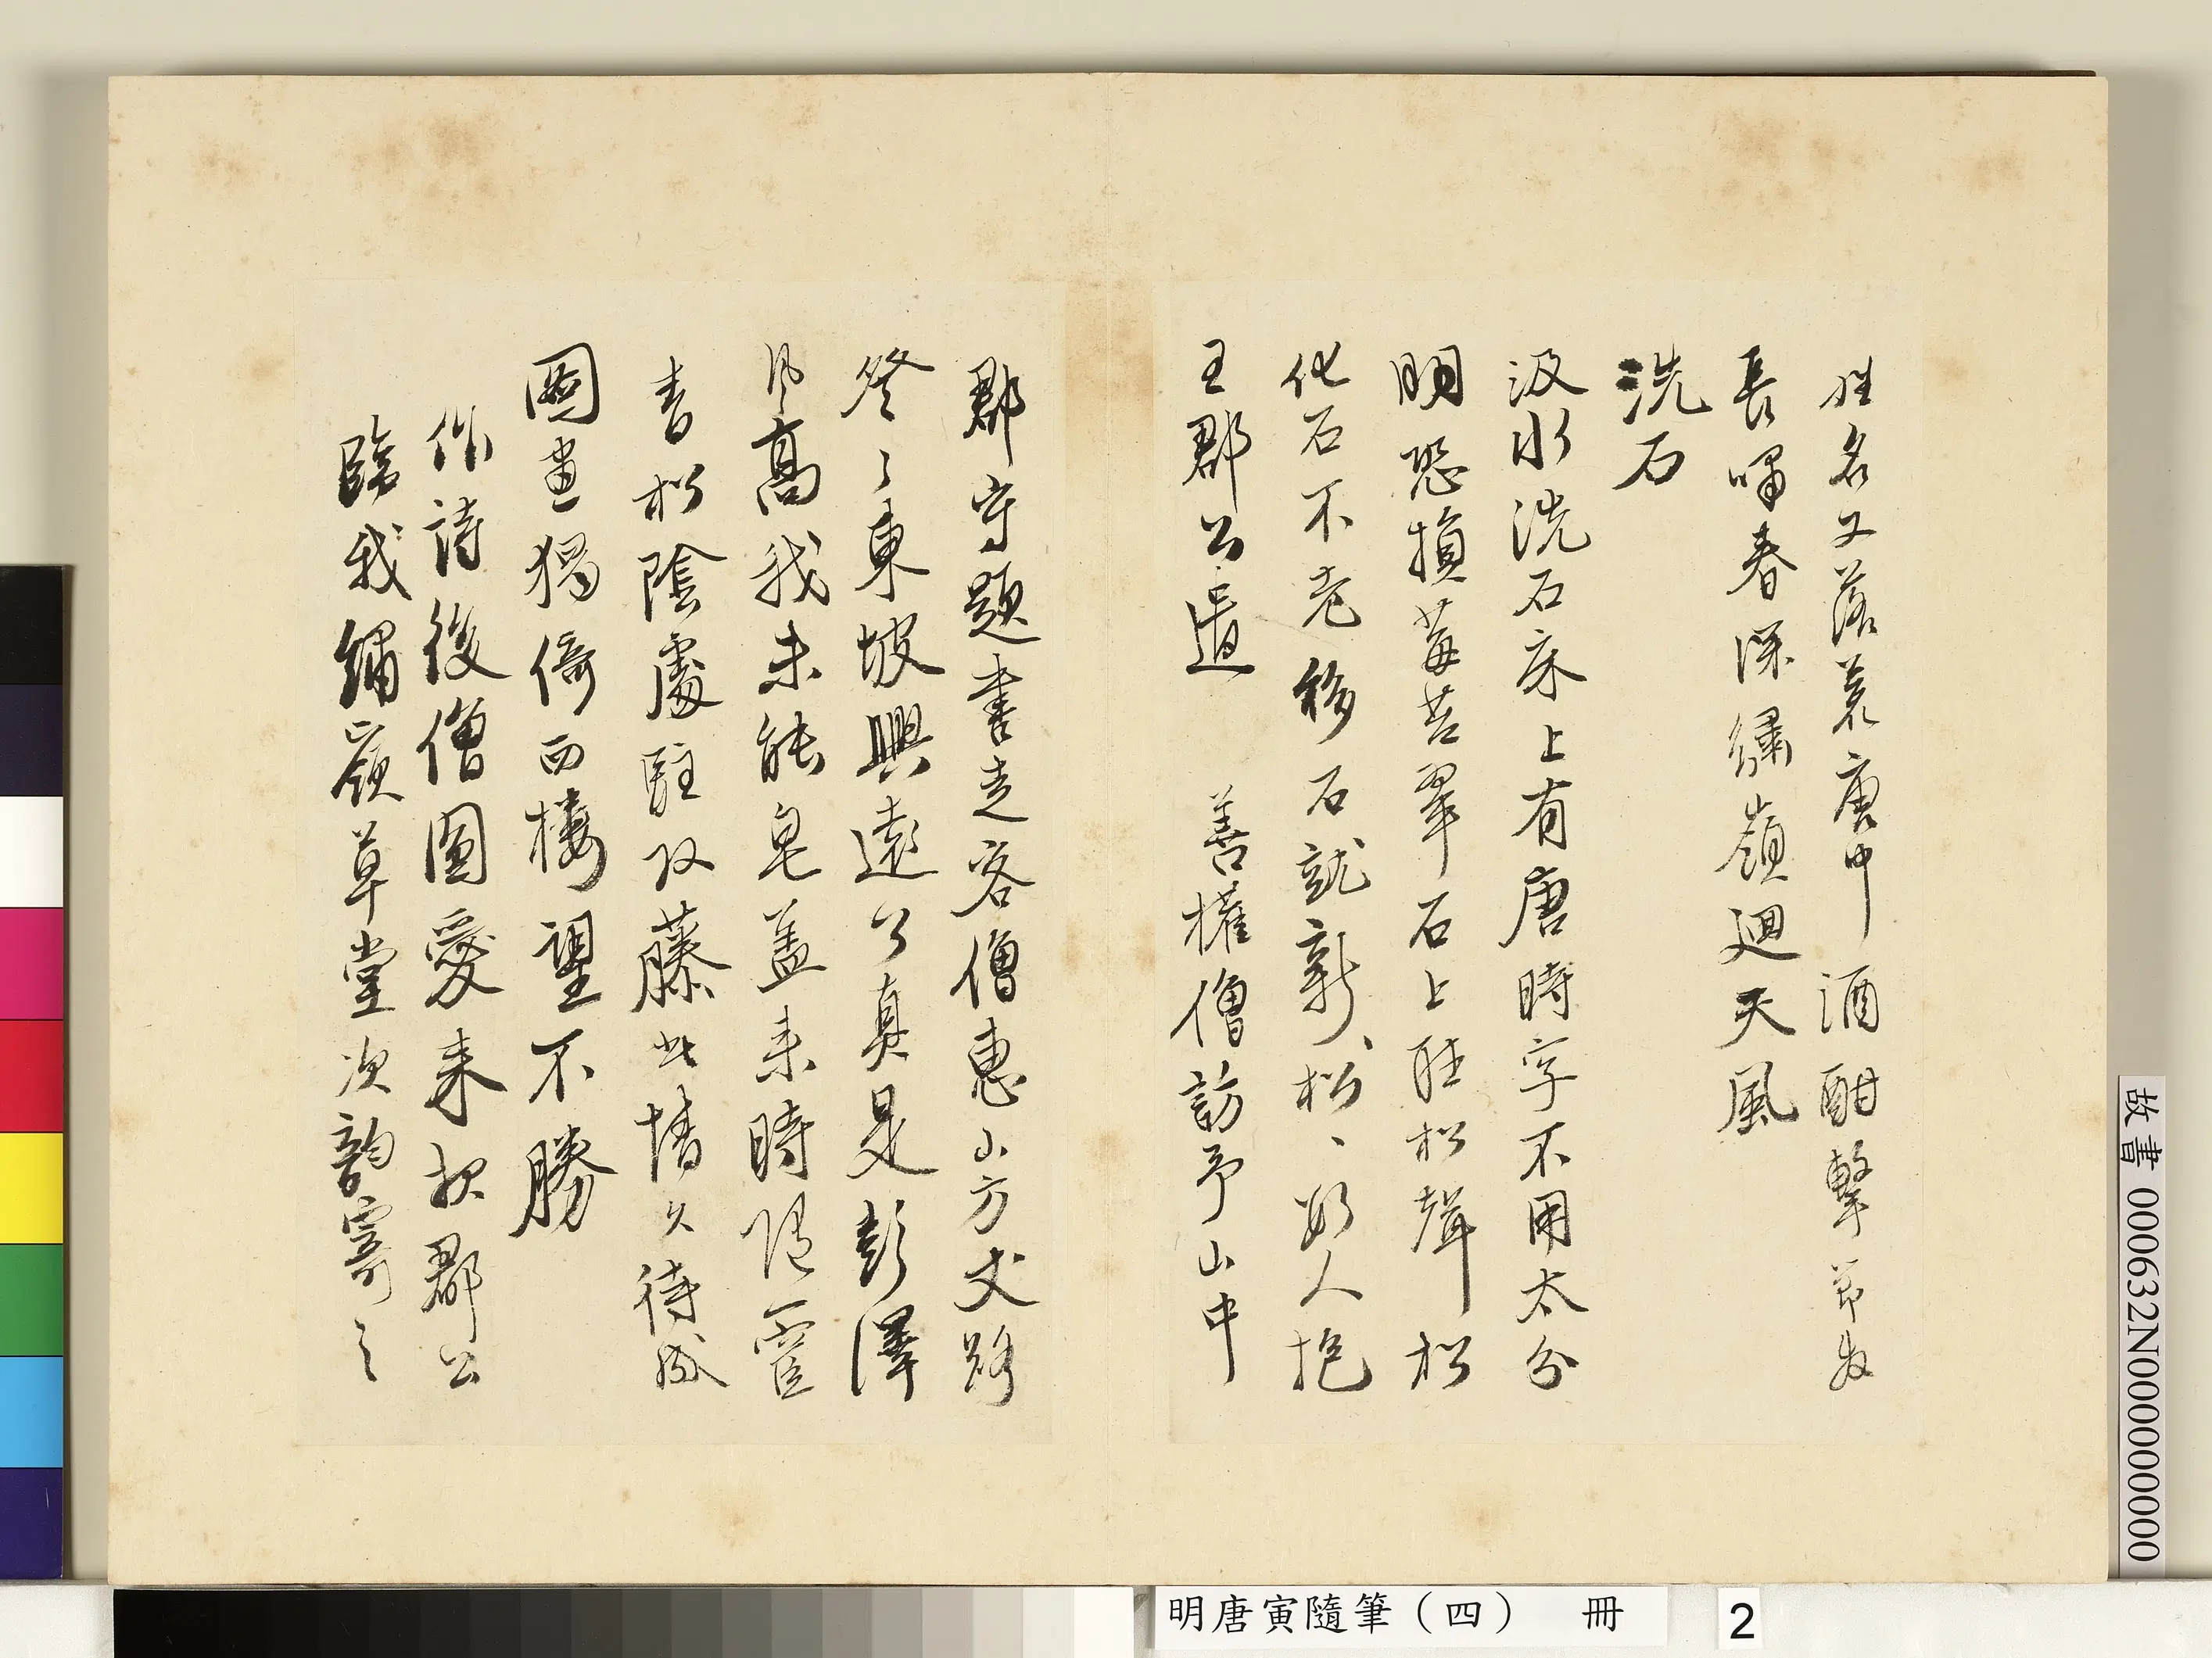 姓名又落蒼唐中酒酣擊節發
長嘯春深繡嶺迴天風
洗石
汲水洗石床上有唐時字不用太分
明恐損莓苔翠石上聽松聲松
化石不老移石就新松松邊人抱
王郡公遣　善權僧訪予山中
郡守題書走客僧惠山方丈路
登登東坡興遠公真是彭澤
風高我未能皂蓋來時隱靄
青松陰處駐攻藤此情久待成
圖畫獨倚西樓望不勝
作詩後僧圖愛來朝郡公
臨我繡嶺草堂次韵寄之
明唐寅隨筆（四）　冊
2
故書 000632N000000000